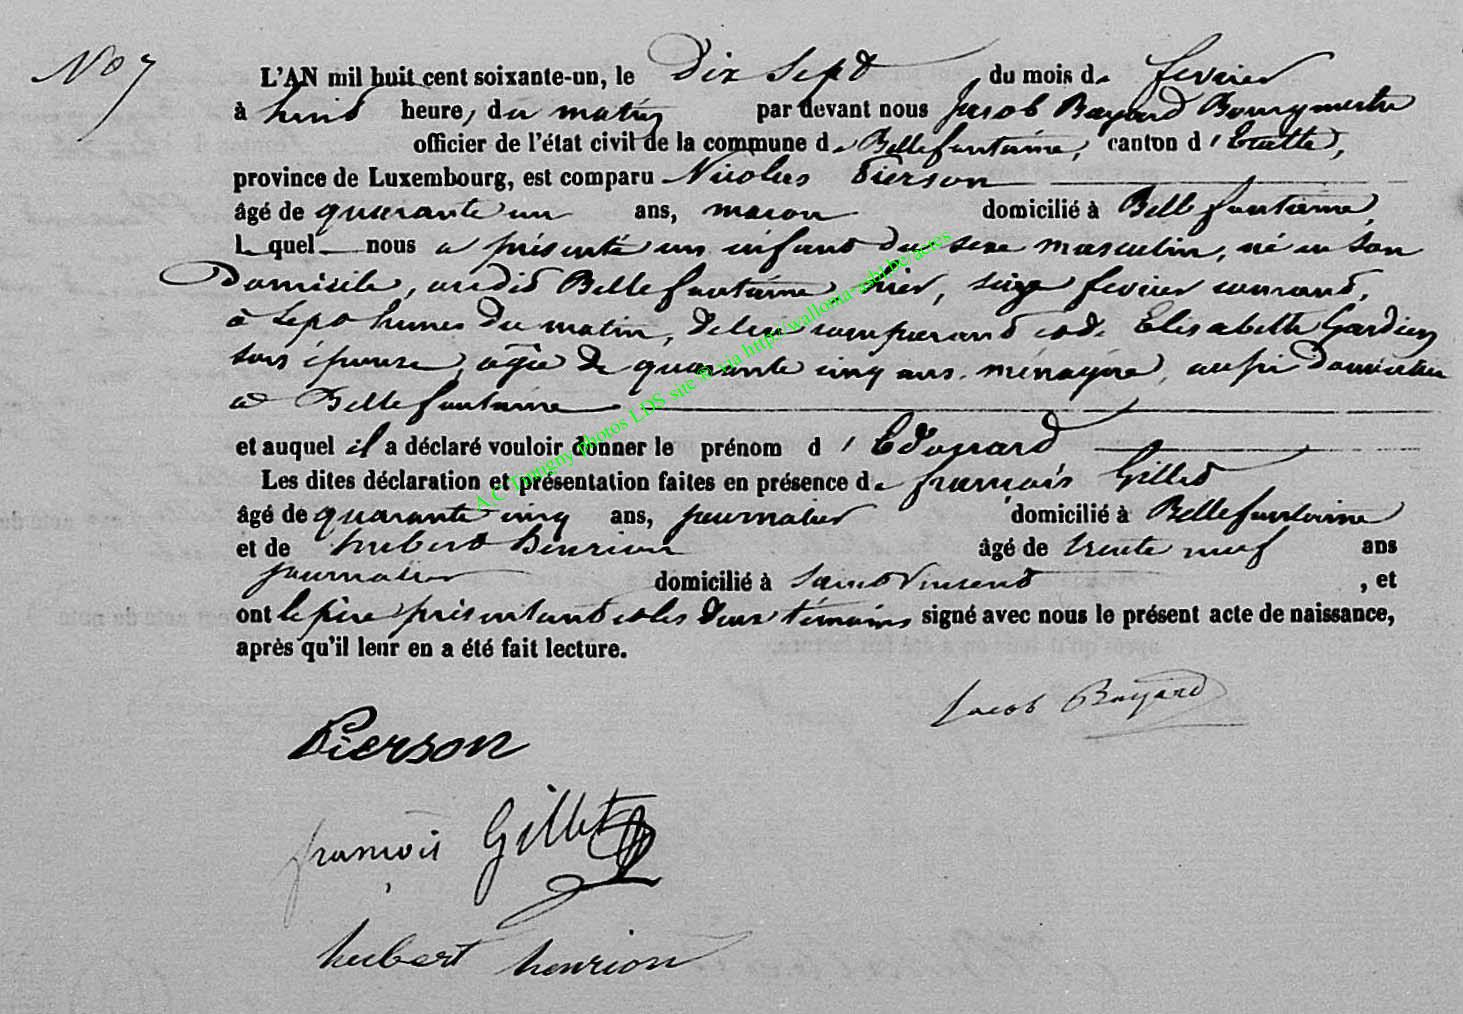 No 7
L'AN mil huit cent soixante-un, le Dix Sept du mois de fevrier
à huit heures, du matin par devant nous Jacob Bayard Bourgmestre
officier de l'état civil de la commune de Bellefontaine, canton d'Etalle,
province de Luxembourg, est comparu Nicolas Pierson
âgé de quarante un ans, maçon domicilié à Bellefontaine,
lequel nous a présenté un enfant du sexe masculin, né en son
Domicile, audit Bellefontaine hier, seize fevrier courant,
à sept heures du matin, de lui comparant et de Elisabeth Gardien
son épouse, agée de quarante cinq ans, ménagère, aussi domiciliée
à Bellefontaine
et auquel il a déclaré vouloir donner le prénom d'Edouard
Les dites déclaration et présentation faites en présence de françois Gillet
âgé de quarante cinq ans, journalier domicilié à Bellefontaine
et de hubert henrion âgé de trente neuf ans
journalier domicilié à Saint Vincent, et
ont le père présentant et les deux témoins signé avec nous le présent acte de naissance,
après qu'il leur en a été fait lecture.
Jacob Bayard
Pierson
françois Gillet
hubert henrion
A.C Tintigny photos LDS site © via http://wallonia-asbl.be/actes